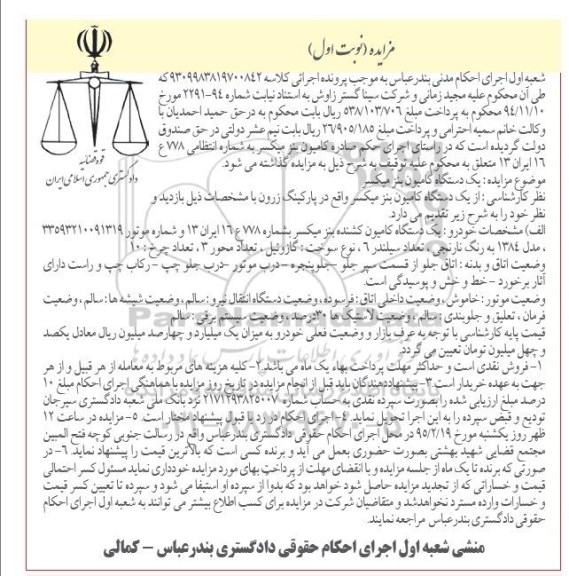 مزایده (نوبت اول)
قوه قضائیه
دادگستری جمهوری اسلامی ایران
شعبه اول اجرای احکام مدنی بندرعباس به موجب پرونده اجرائی کلاسه ۹۳۰۹۹۸۳۸۱۹۷۰۰۸۴۲ که
طی آن محکوم علیه مجید زمانی و شرکت سینا گستر زاوش به استناد نیابت شماره ۹۴-۲۲۹۱ مورخ
۹۴/۱۱/۱۰ محکوم به پرداخت مبلغ ۵۳۸/۱۰۳/۷۰۶ ریال بابت محکوم به درحق حمید احمدیان با
وکالت خانم سمیه احترامی و پرداخت مبلغ ۲۶/۹۰۵/۱۸۵ ریال بابت نیم عشر دولتی در حق صندوق
دولت گردیده است که در راستای اجرای حکم صادره کامیون بنز میکسر به شماره انتظامی ۷۷۸ ع
۱۶ ایران ۱۳ متعلق به محکوم علیه توقیف به شرح ذیل به مزایده گذاشته می شود.
موضوع مزایده: یک دستگاه کامیون بنز میکسر
نظر کارشناسی: از یک دستگاه کامیون بنز میکسر واقع در پارکینگ زرون با مشخصات ذیل بازدید و
نظر خود را به شرح زیر تقدیم می دارد.
الف) مشخصات خودرو: یک دستگاه کامیون کشنده بنز میکسر بشماره ۷۷۸ ع ۱۶ ایران ۱۳ و شماره موتور ۳۳۵۹۳۲۱۰۰۹۱۳۱۹
، مدل ۱۳۸۴ به رنگ نارنجی ، تعداد سیلندر ۶ ، نوع سوخت : گازوئیل ، تعداد محور ۳ ، تعداد چرخ : ۱۰
وضعیت اتاق و بدنه : اتاق جلو از قسمت سپر جلو - جلوپنجره - درب موتور - درب جلو چپ - رکاب چپ و راست دارای
آثار برخورد - خط و خش و پوسیدگی است.
وضعیت موتور: خاموش ، وضعیت داخلی اتاق : فرسوده ، وضعیت دستگاه انتقال نیرو : سالم ، وضعیت شیشه ها : سالم ، وضعیت
فرمان ، تعلیق و جلوبندی : سالم، وضعیت لاستیک ها ۳۰ درصد ، وضعیت سیستم برقی : سالم
قیمت پایه کارشناسی با توجه به عرف بازار و وضعیت فعلی خودرو به میزان یک میلیارد و چهارصد میلیون ریال معادل یکصد
و چهل میلیون تومان تعیین می گردد.
۱- فروش نقدی است و حداکثر مهلت پرداخت بهاء یک ماه می باشد. ۲- کلیه هزینه های مربوط به معامله از هر قبیل و از هر
جهت به عهده خریدار است. ۳- پیشنهاددهندگان باید قبل از انجام مزایده در تاریخ روز مزایده با هماهنگی اجرای احکام مبلغ ۱۰
درصد مبلغ ارزیابی شده را بصورت سپرده نقدی به حساب شماره ۲۱۷۱۲۹۳۸۲۵۰۰۷ نزد بانک ملی شعبه دادگستری سیرجان
تودیع و قبض سپرده را به این اجرا تحویل نماید. ۴- اجرای احکام در رد یا قبول پیشنهاد مختار است. ۵- مزایده در ساعت ۱۲
ظهر روز یکشنبه مورخ ۹۵/۲/۱۹ در محل اجرای احکام حقوقی دادگستری بندرعباس واقع در رسالت جنوبی کوچه فتح المبین
مجتمع قضایی شهید بهشتی بصورت حضوری بعمل می آید و برنده کسی است که بالاترین قیمت را پیشنهاد نماید. ۶- در
صورتی که برنده تا یک ماه از جلسه مزایده و با انقضای مهلت از پرداخت بهای مورد مزایده خودداری نماید مسئول کسر احتمالی
قیمت و خساراتی که از تجدید مزایده حاصل شود خواهد بود که بدوا از سپرده او استیفا می شود و سپرده تا تعیین کسر قیمت
و خسارات وارده مسترد نخواهد شد و متقاضیان شرکت در مزایده برای کسب اطلاع بیشتر می توانند به شعبه اول اجرای احکام
حقوقی دادگستری بندرعباس مراجعه نمایند.
منشی شعبه اول اجرای احکام حقوقی دادگستری بندرعباس - کمالی